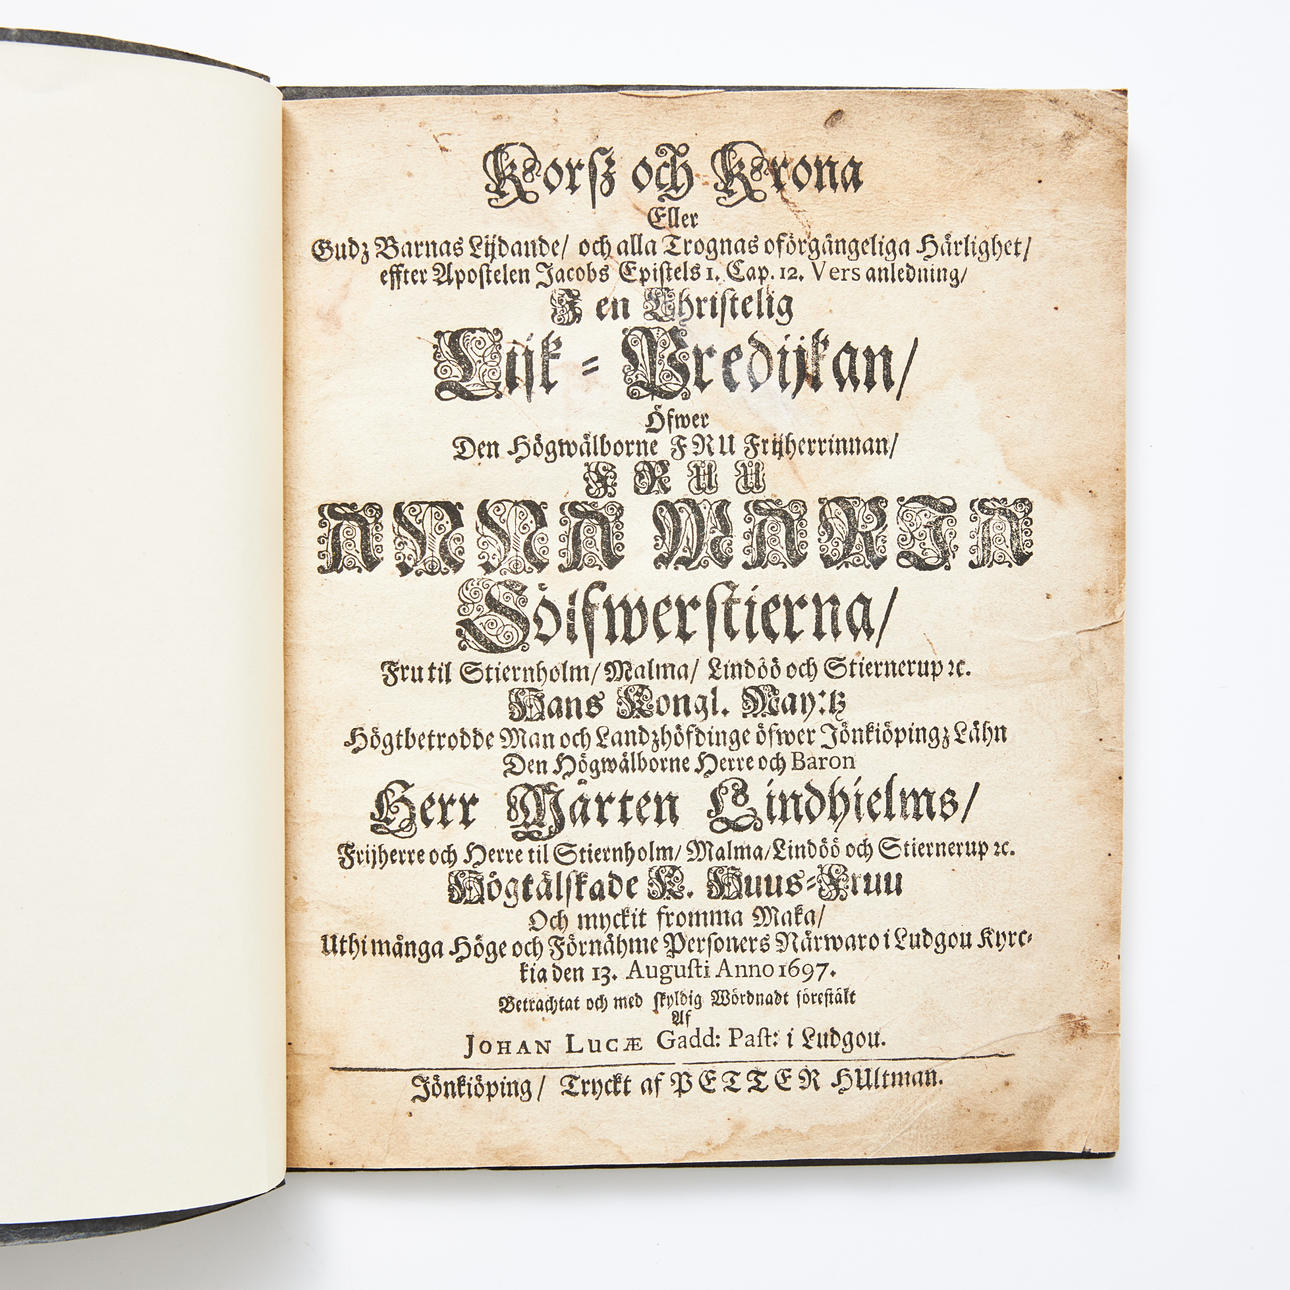 Korsz och Krona
Eller
Gudz Barnas Lijdande/ och alla Trognas oförgängeliga Härlighet/
effter Apostelen Jacobs Epistels 1. Cap. 12. Vers anledning/
I en Christelig
Lijk = Predijkan/
Öfwer
Den Högwälborne FRU Frijherrinnan/
FRUU
ANNA MARIA
Sölfwerstierna/
Fru til Stiernholm/ Malma/ Lindöö och Stiernerup ꝛc.
Hans Kongl. May:tz
Högtbetrodde Man och Landzhöfdinge öfwer Jönkiöpingz Lähn
Den Högwälborne Herre och Baron
Herr Mårten Lindhielms/
Frijherre och Herre til Stiernholm/ Malma/ Lindöö och Stiernerup ꝛc.
Högtälskade K. Huus=Fruu
Och myckit fromma Maka/
Uthi många Höge och Förnähme Personers Närwaro i Ludgou Kyrc=
kia den 13. Augusti Anno 1697.
Betrachtat och med skyldig Wördnadt förestält
Af
JOHAN LUCÆ Gadd: Past: i Ludgou.
Jönkiöping/ Tryckt af PETTER HUltman.